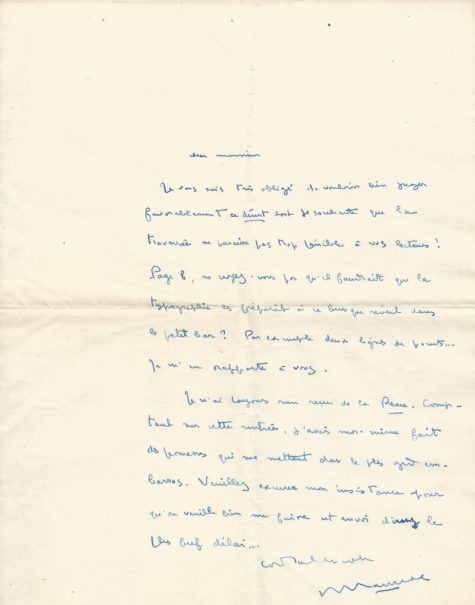 cher monsieur
Je vous suis très obligé de vouloir bien juger
favorablement ce désert dont je souhaite que la
traversée ne paraisse pas trop pénible à vos lecteurs !
Page 8, ne croyez-vous pas qu'il faudrait que la
typographie les préparât à ce brusque réveil dans
le petit bar ? Par exemple deux lignes de points...
Je m'en rapporte à vous.
Je n'ai toujours rien reçu de la Revue. Comp-
tant sur cette rentrée, j'avais moi-même fait
des promesses qui me mettent dans le plus grd em-
barras. Veuillez excuser mon insistance pour
qu'on veuille bien me faire cet envoi dans le
plus bref délai...
Cordialement